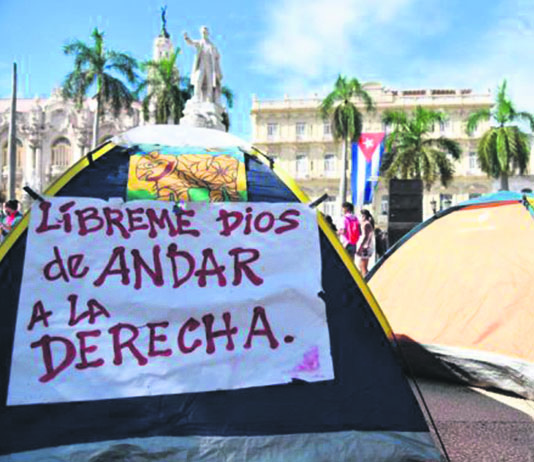 LÍBREME DIOS
de ANDAR
A LA
DERECHA.